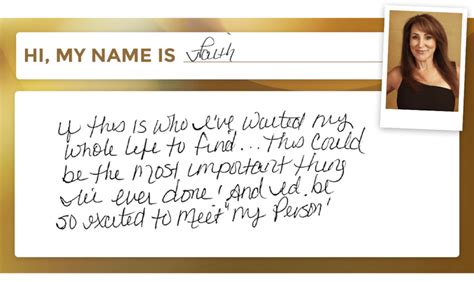 HI, MY NAME IS Faith
if this is who I've waited my
whole life to find... this could
be the most important thing
I've ever done! And I'd be
so excited to meet "my Person'